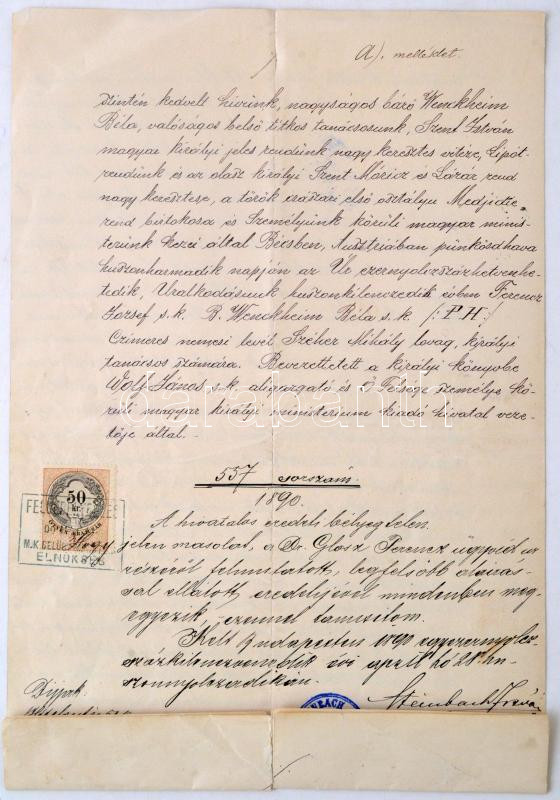 A). melléklet.
szintén kedvelt hívünk, nagyságos báró Wenckheim
Béla, valóságos belső titkos tanácsosunk, Szent István
magyar királyi jeles rendünk nagy keresztes vitéze, Lipót
rendünk és az olasz királyi Szent Móricz és Lázár rend
nagy keresztese, a török császári első osztályu Medjidie-
rend birtokosa és Személyünk körüli magyar minis-
terünk kezei által Bécsben, Ausztriában pünkösdhava
huszonharmadik napján az Úr ezernyolczszázhetvenhe-
tedik, Uralkodásunk huszonkilenczedik évben Ferencz
József s. k. B. Wenckheim Béla s. k. /: P H :/
Czimeres nemesi levél Széher Mihály lovag, királyi
tanácsos számára. Bevezettetett a királyi könyvbe
Wolf János s. k. aligazgató és Ő Felsége személye kö-
rüli magyar királyi ministerium kiadó hivatal veze-
tője által. -
557 sorszám.
1890.
A hivatalos eredeti bélyegtelen.
Hogy jelen másolat, a Dr. Glósz Ferencz ügyvéd úr
részéről felmutatott, legfelsőbb aláirás-
sal ellátott eredetijével mindenben meg-
egyezik, ezennel tanusitom.
Kelt Budapesten 1890 egyezernyolcz-
százkilenczvenedik évi april hó 28 hu-
szonnyolczadikán.
50
kr.
ELNÖKSÉG
Díjjak:
Steinbach
darabanth